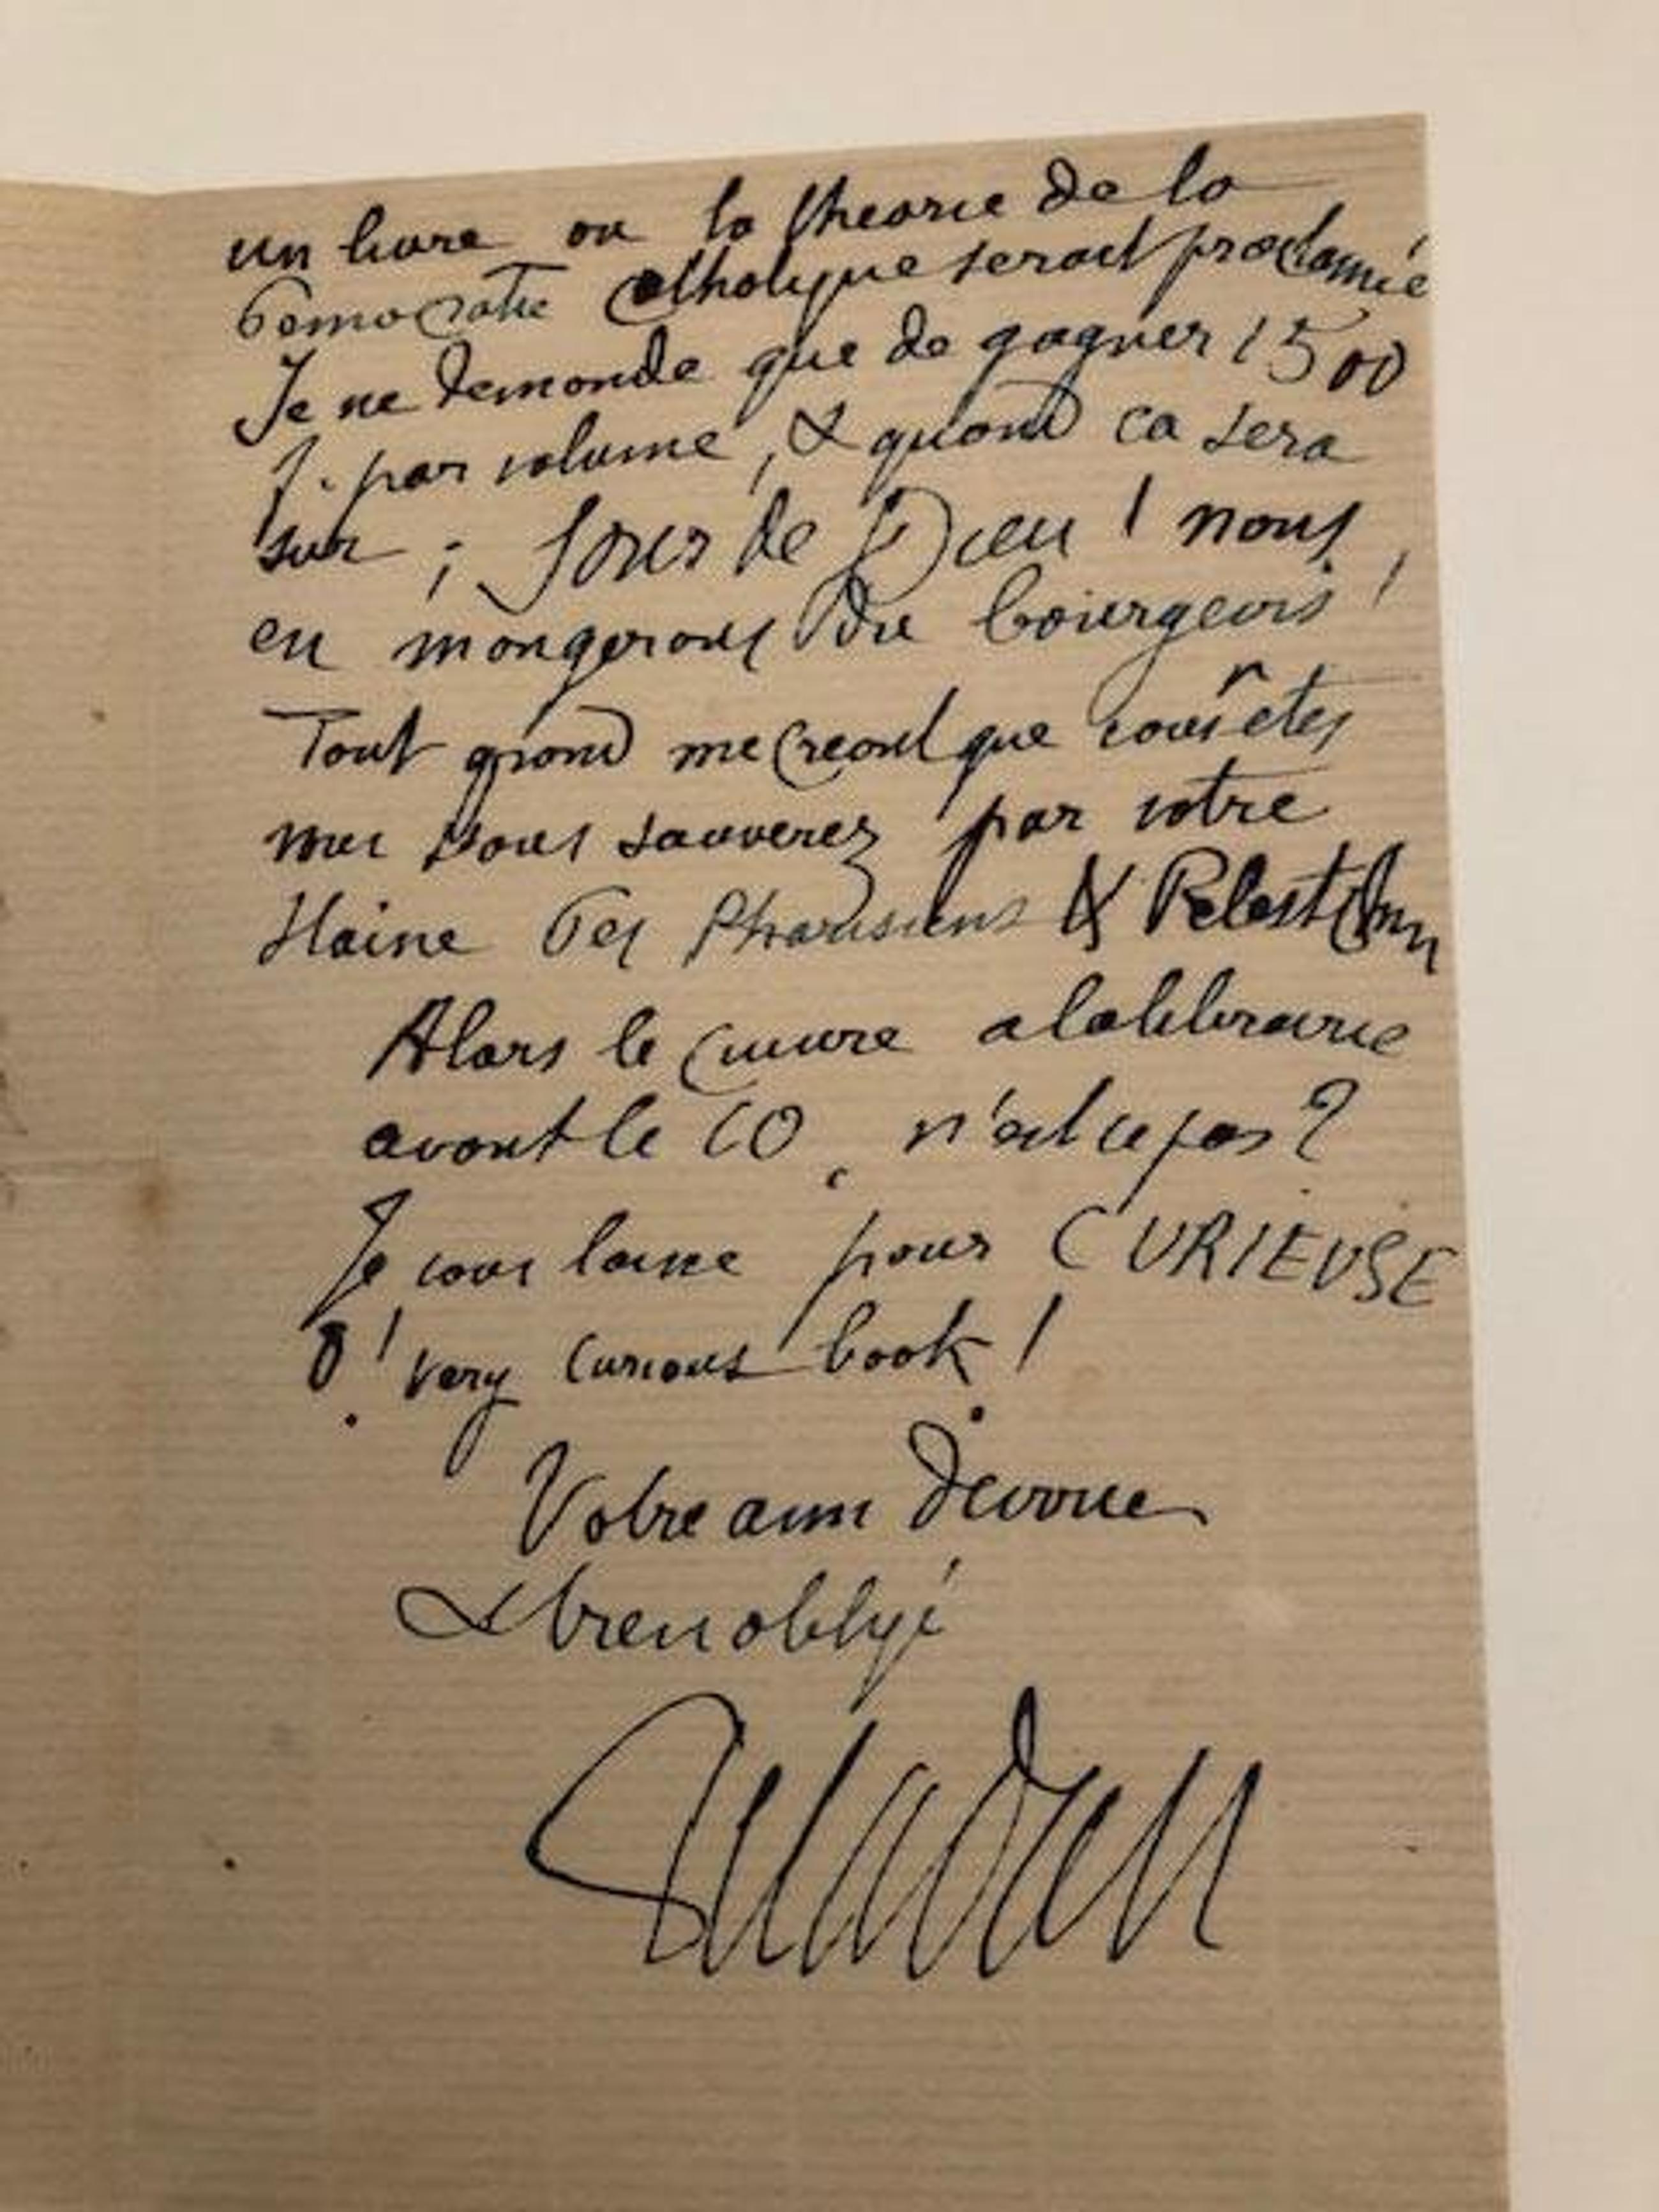 un livre ou la theorie de la
Democratie catholique serait proclamée
Je ne demande que de gagner 1500
f. par volume, & quand ca sera
sur; Jour de Dieu! nous
en mangerons du bourgeois!
Tout grand mecreant que vous êtes
vous sauverez par votre
Haine des Pharisiens &
Alors le cuivre a la librairie
avant le 10, n'est ce pas?
Je vous laisse pour CURIEUSE
O! very curious book!
Votre ami devoue
& bien obligé
Peladan